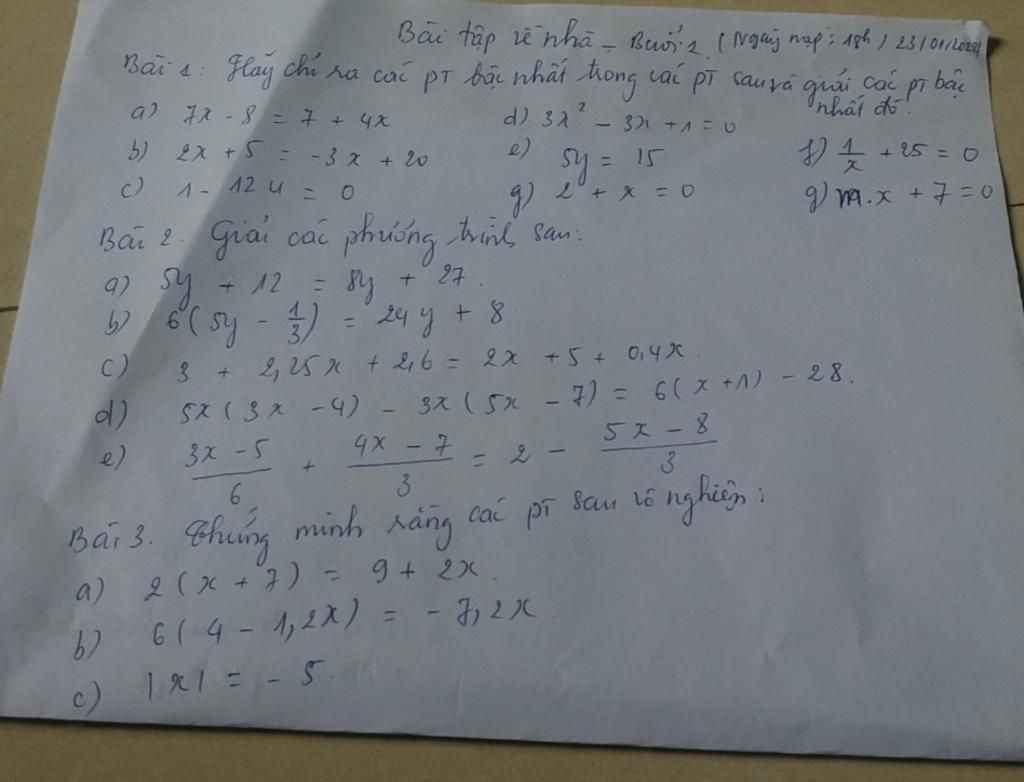 Bài tập về nhà - Buổi 1 (Ngày nạp: 18h) 23/01/202
Bài 1: Hãy chỉ ra các PT bậc nhất trong các PT sau và giải các PT bậc nhất đó.
a) 7x - 8 = 7 + 4x d) 3x² - 3x + 1 = 0
b) 2x + 5 = -3x + 20 e) 5y = 15 f) 1/x + 25 = 0
c) 1 - 12u = 0 g) 2 + x = 0 g) m.x + 7 = 0
Bài 2. Giải các phương trình sau:
a) 5y + 12 = 8y + 27.
b) 6(5y - 1/3) = 24y + 8
c) 3 + 2,25x + 2,6 = 2x + 5 + 0,4x.
d) 5x(3x - 4) - 3x(5x - 7) = 6(x+1) - 28.
e) (3x - 5)/6 + (4x - 7)/3 = 2 - (5x - 8)/3
Bài 3. Chứng minh rằng các PT sau vô nghiệm:
a) 2(x + 7) = 9 + 2x.
b) 6(4 - 1,2x) = -7,2x
c) |x| = -5.